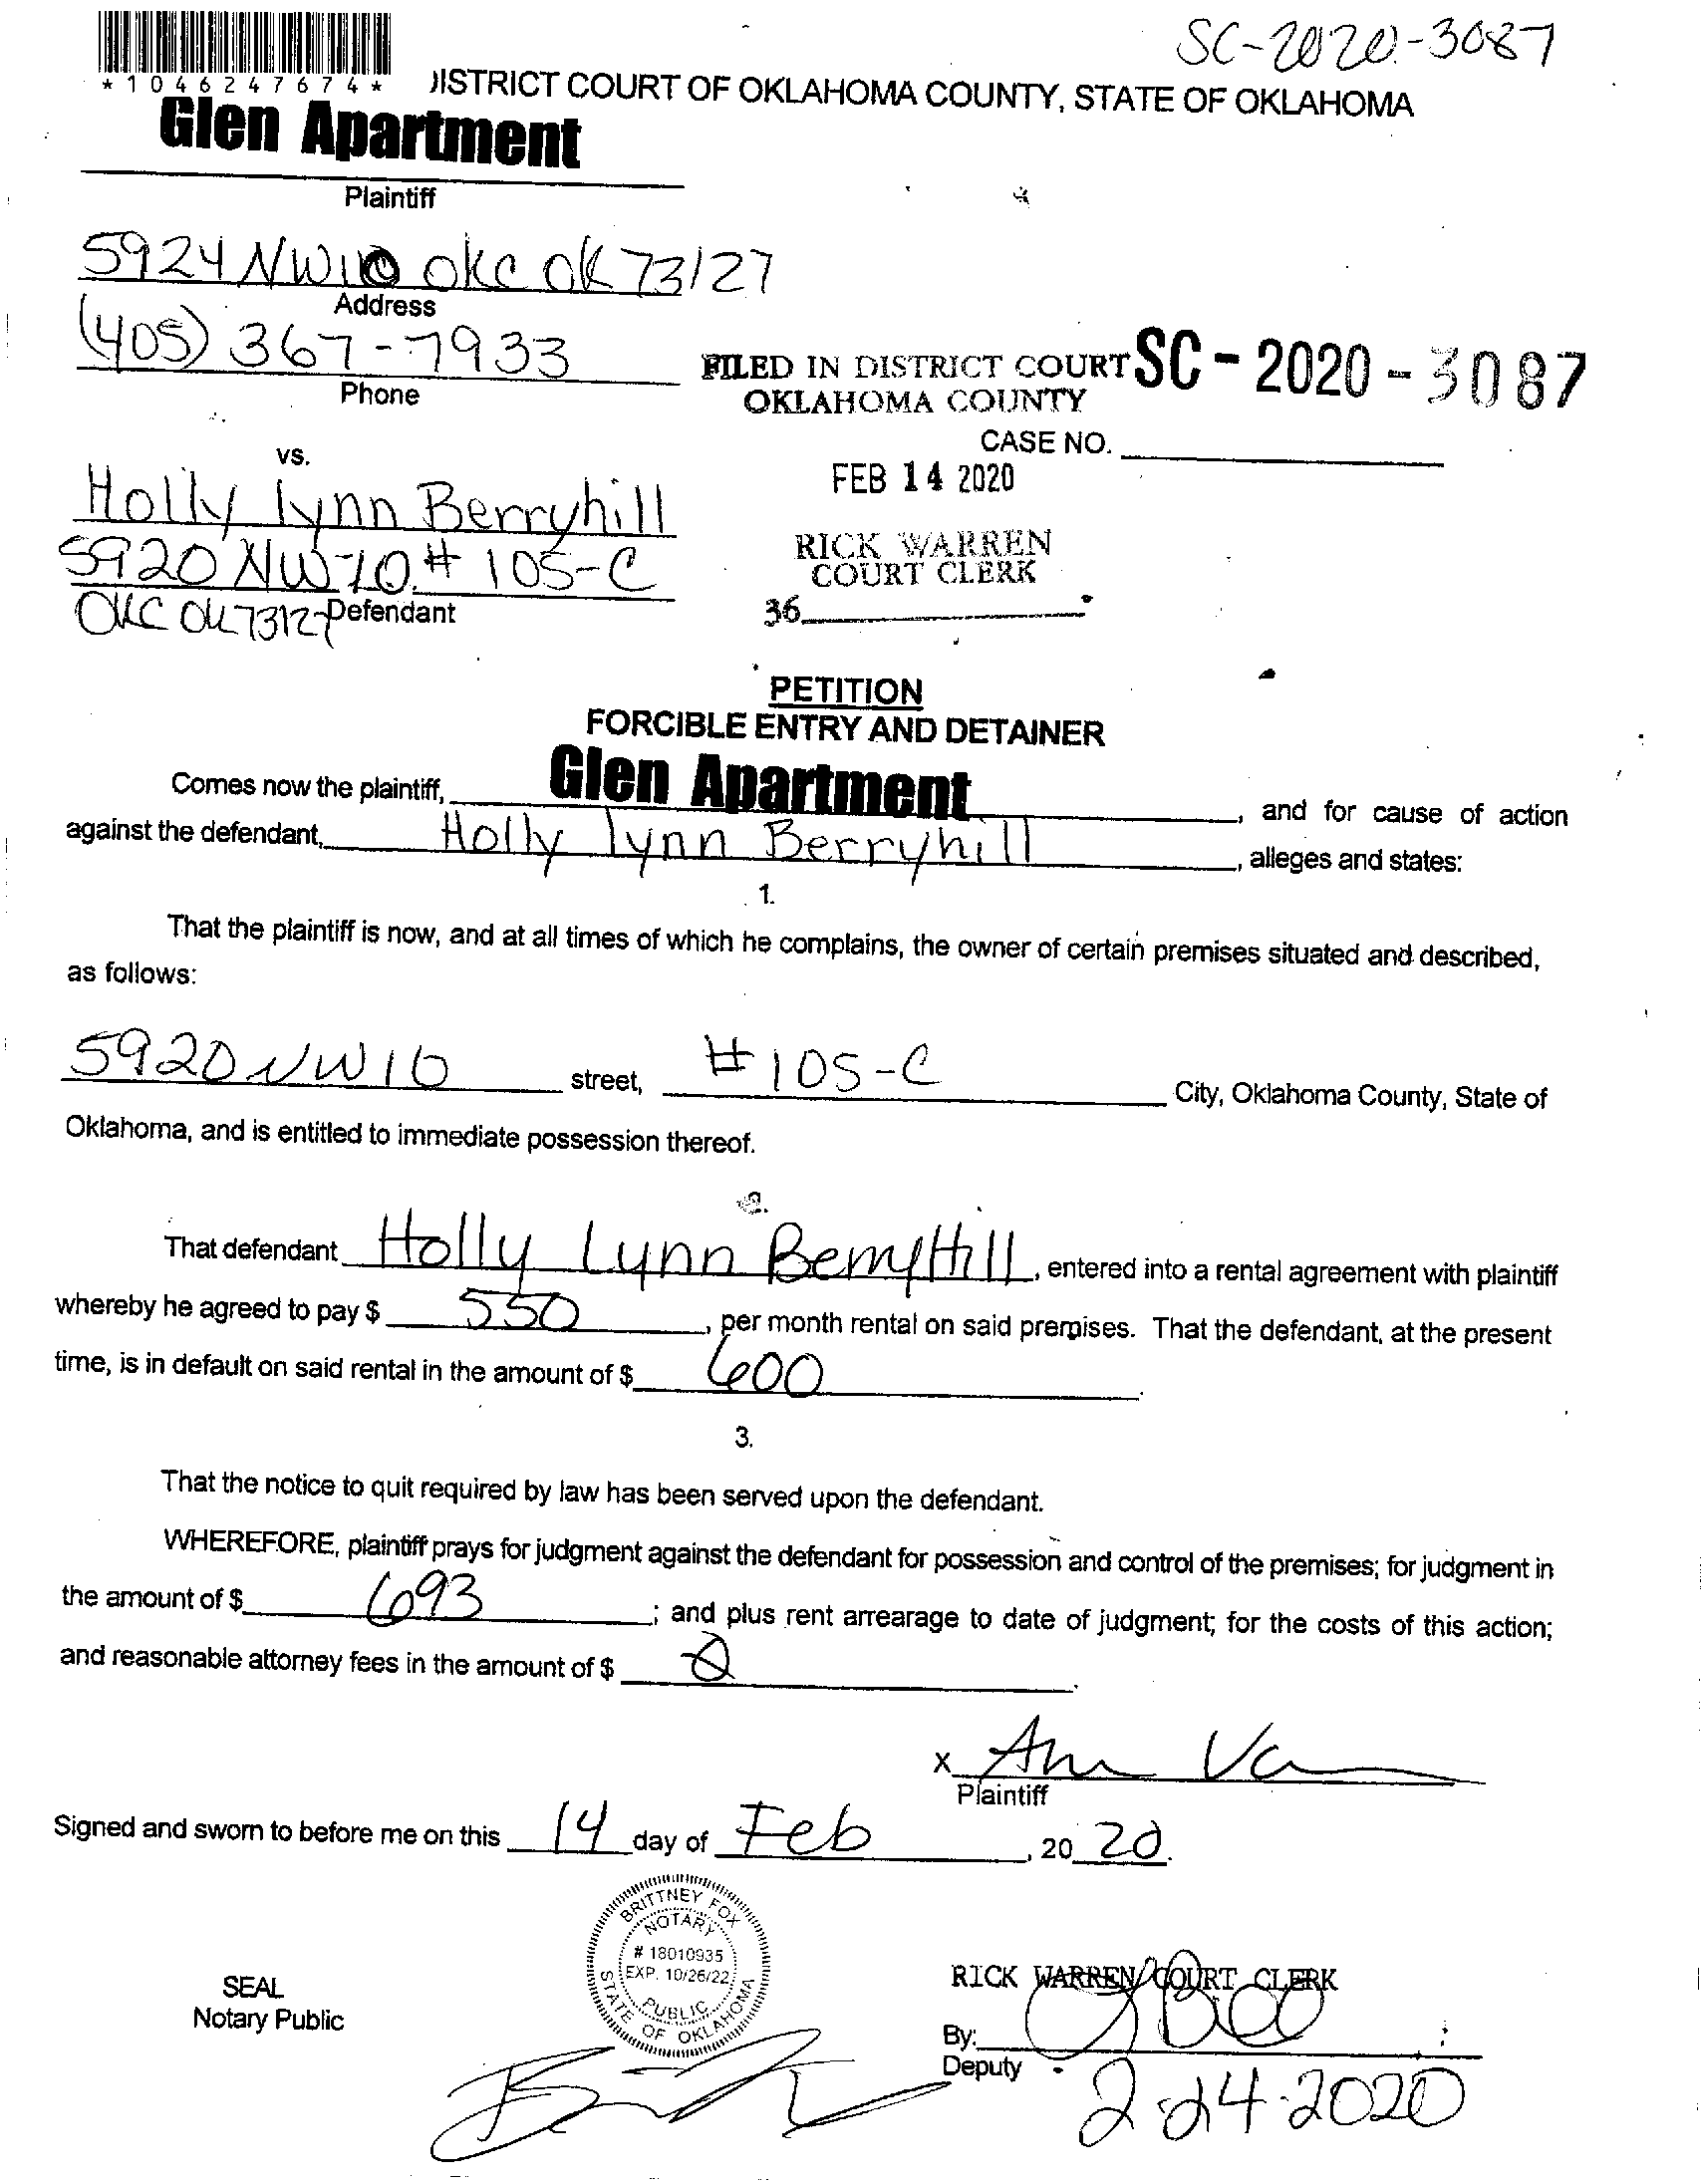 SC-2020-3087
*1046247674*
DISTRICT COURT OF OKLAHOMA COUNTY, STATE OF OKLAHOMA
Glen Apartment
Plaintiff
5924 NW 10 OKC OK 73127
Address
(405) 367-7933
Phone
FILED IN DISTRICT COURT
OKLAHOMA COUNTY
SC-2020-3087
CASE NO.
FEB 14 2020
RICK WARREN
COURT CLERK
36
vs.
Holly Lynn Berryhill
5920 NW 10 # 105-C
OKC OK 73127 Defendant
PETITION
FORCIBLE ENTRY AND DETAINER
Comes now the plaintiff, Glen Apartment, and for cause of action
against the defendant, Holly Lynn Berryhill, alleges and states:
1.
That the plaintiff is now, and at all times of which he complains, the owner of certain premises situated and described,
as follows:
5920 NW 10 street, #105-C City, Oklahoma County, State of
Oklahoma, and is entitled to immediate possession thereof.
2.
That defendant Holly Lynn BerryHill, entered into a rental agreement with plaintiff
whereby he agreed to pay $ 550, per month rental on said premises. That the defendant, at the present
time, is in default on said rental in the amount of $ 600.
3.
That the notice to quit required by law has been served upon the defendant.
WHEREFORE, plaintiff prays for judgment against the defendant for possession and control of the premises; for judgment in
the amount of $ 693; and plus rent arrearage to date of judgment; for the costs of this action;
and reasonable attorney fees in the amount of $ 0.
x
Plaintiff
Signed and sworn to before me on this 14 day of Feb, 20 20.
BRITTNEY FOX
NOTARY
# 18010935
EXP. 10/26/22
PUBLIC
STATE OF OKLAHOMA
SEAL
Notary Public
RICK WARREN COURT CLERK
By:
Deputy
2-24-2020